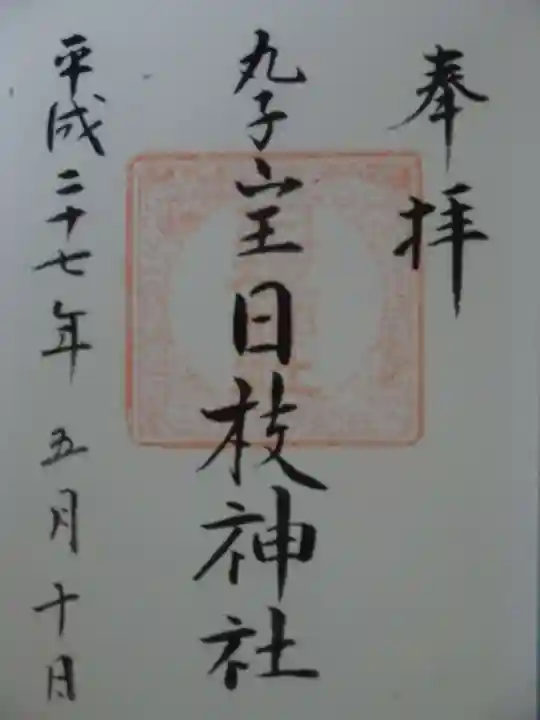 奉拝
丸子山王日枝神社
平成二十七年 五月十日